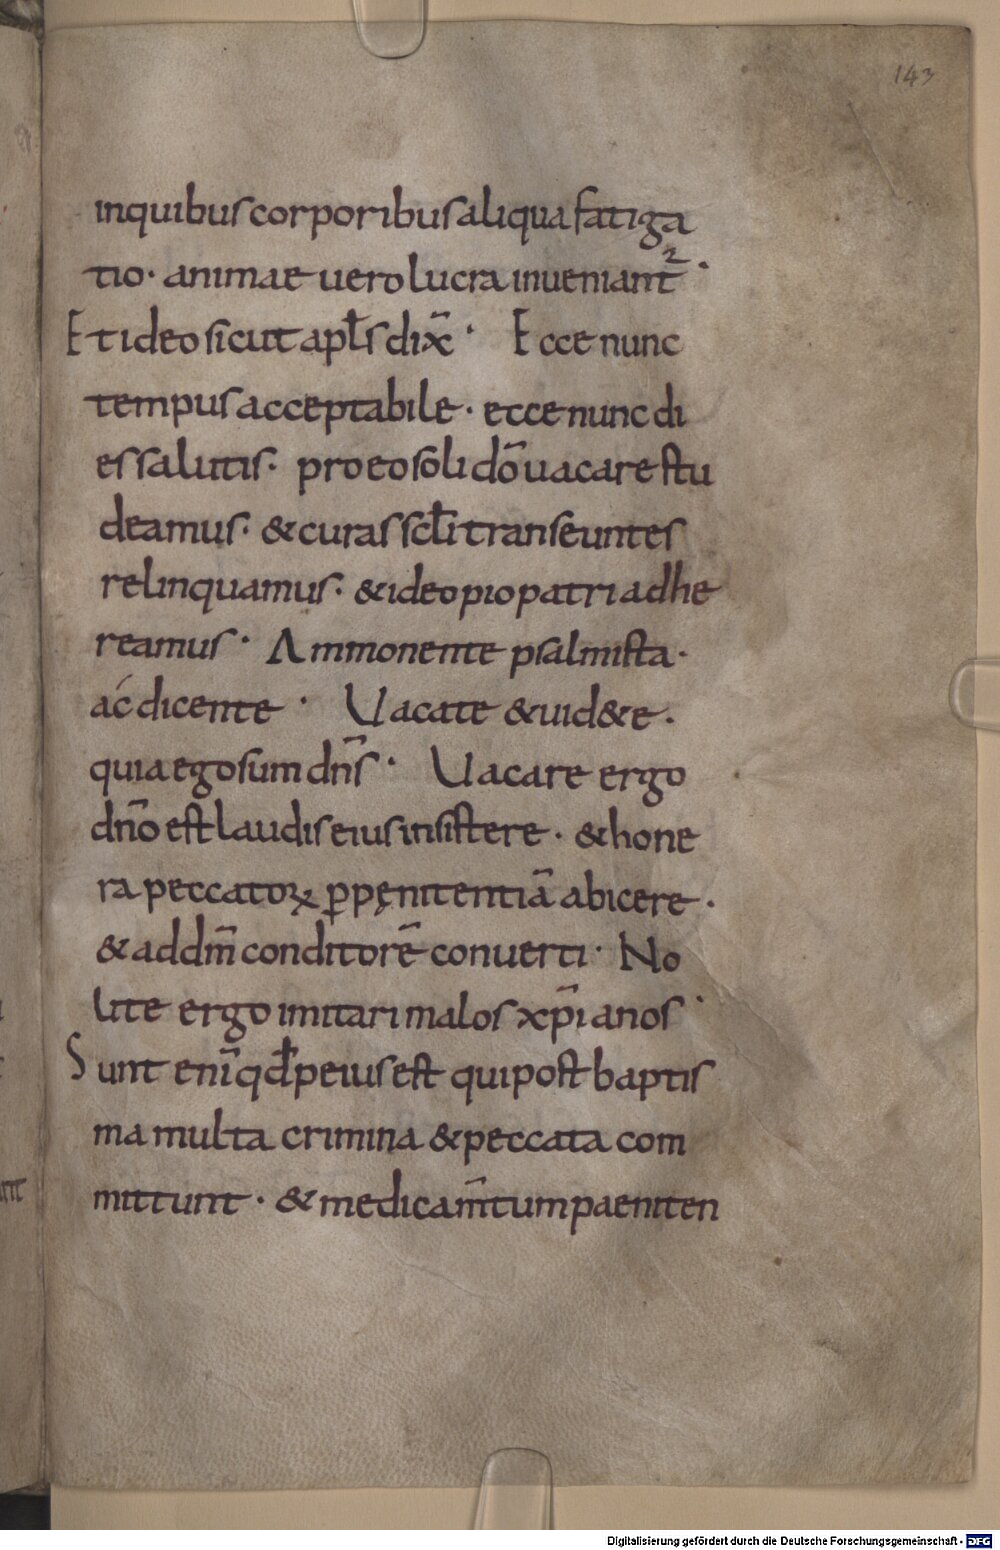 143
inquibus corporibus aliqua fatiga
tio· animae uero lucra inueniant᷑·
Et ideo sicut apl̄s dix̄· Ecce nunc
tempus acceptabile· ecce nunc di
es salutis· pro eo soli dō uacare stu
deamus· & curas scl̄i transeuntes
relinquamus· & ideo pio patri adhe
reamus· Ammonente psalmista·
ac dicente· Uacate & uid&e·
quia ego sum dn̄s· Uacare ergo
dn̄o est laudis eius insistere· & hone
ra peccatoꝝ ꝑ pęnitentiā abicere·
& ad dm̄ conditorē conuerti· No
lite ergo imitari malos xp̄ianos·
Sunt enī qd̄ peius est qui post baptis
ma multa crimina & peccata com
mittunt· & medicam̄tum paeniten
Digitalisierung gefördert durch die Deutsche Forschungsgemeinschaft - DFG